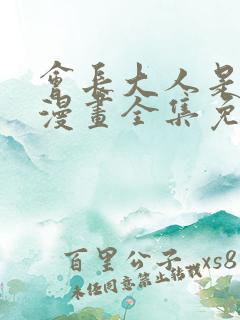 會長大人是
漫畫全集免
百里公子 xs8
未经同意禁止转载